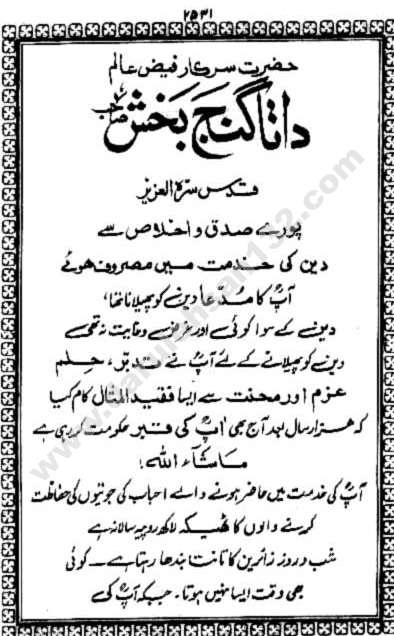 ۲۵۳۱
حضرت سرکار فیض عالم
داتا گنج بخش صاحبؒ
قدس سرہ العزیز
پورے صدق و اخلاص سے
دین کی خدمت میں مصروف ہوئے
آپؒ کا مدعا دین کو پھیلانا تھا،
دین کے سوا کوئی اور غرض و غایت نہ تھی
دین کو پھیلانے کے لئے آپؒ نے تدبر، حلم
عزم اور محنت سے ایسا فقید المثال کام کیا
کہ ہزار سال بعد آج بھی آپؒ کی قبر حکومت کر رہی ہے
ماشآء اللہ!
آپؒ کی خدمت میں حاضر ہونے والے احباب کی جوتیوں کی حفاظت
کرنے والوں کا ٹھیکہ لاکھ روپیہ سالانہ ہے
شب و روز زائرین کا تانتا بندھا رہتا ہے — کوئی
بھی وقت ایسا نہیں ہوتا۔ جبکہ آپؒ کی